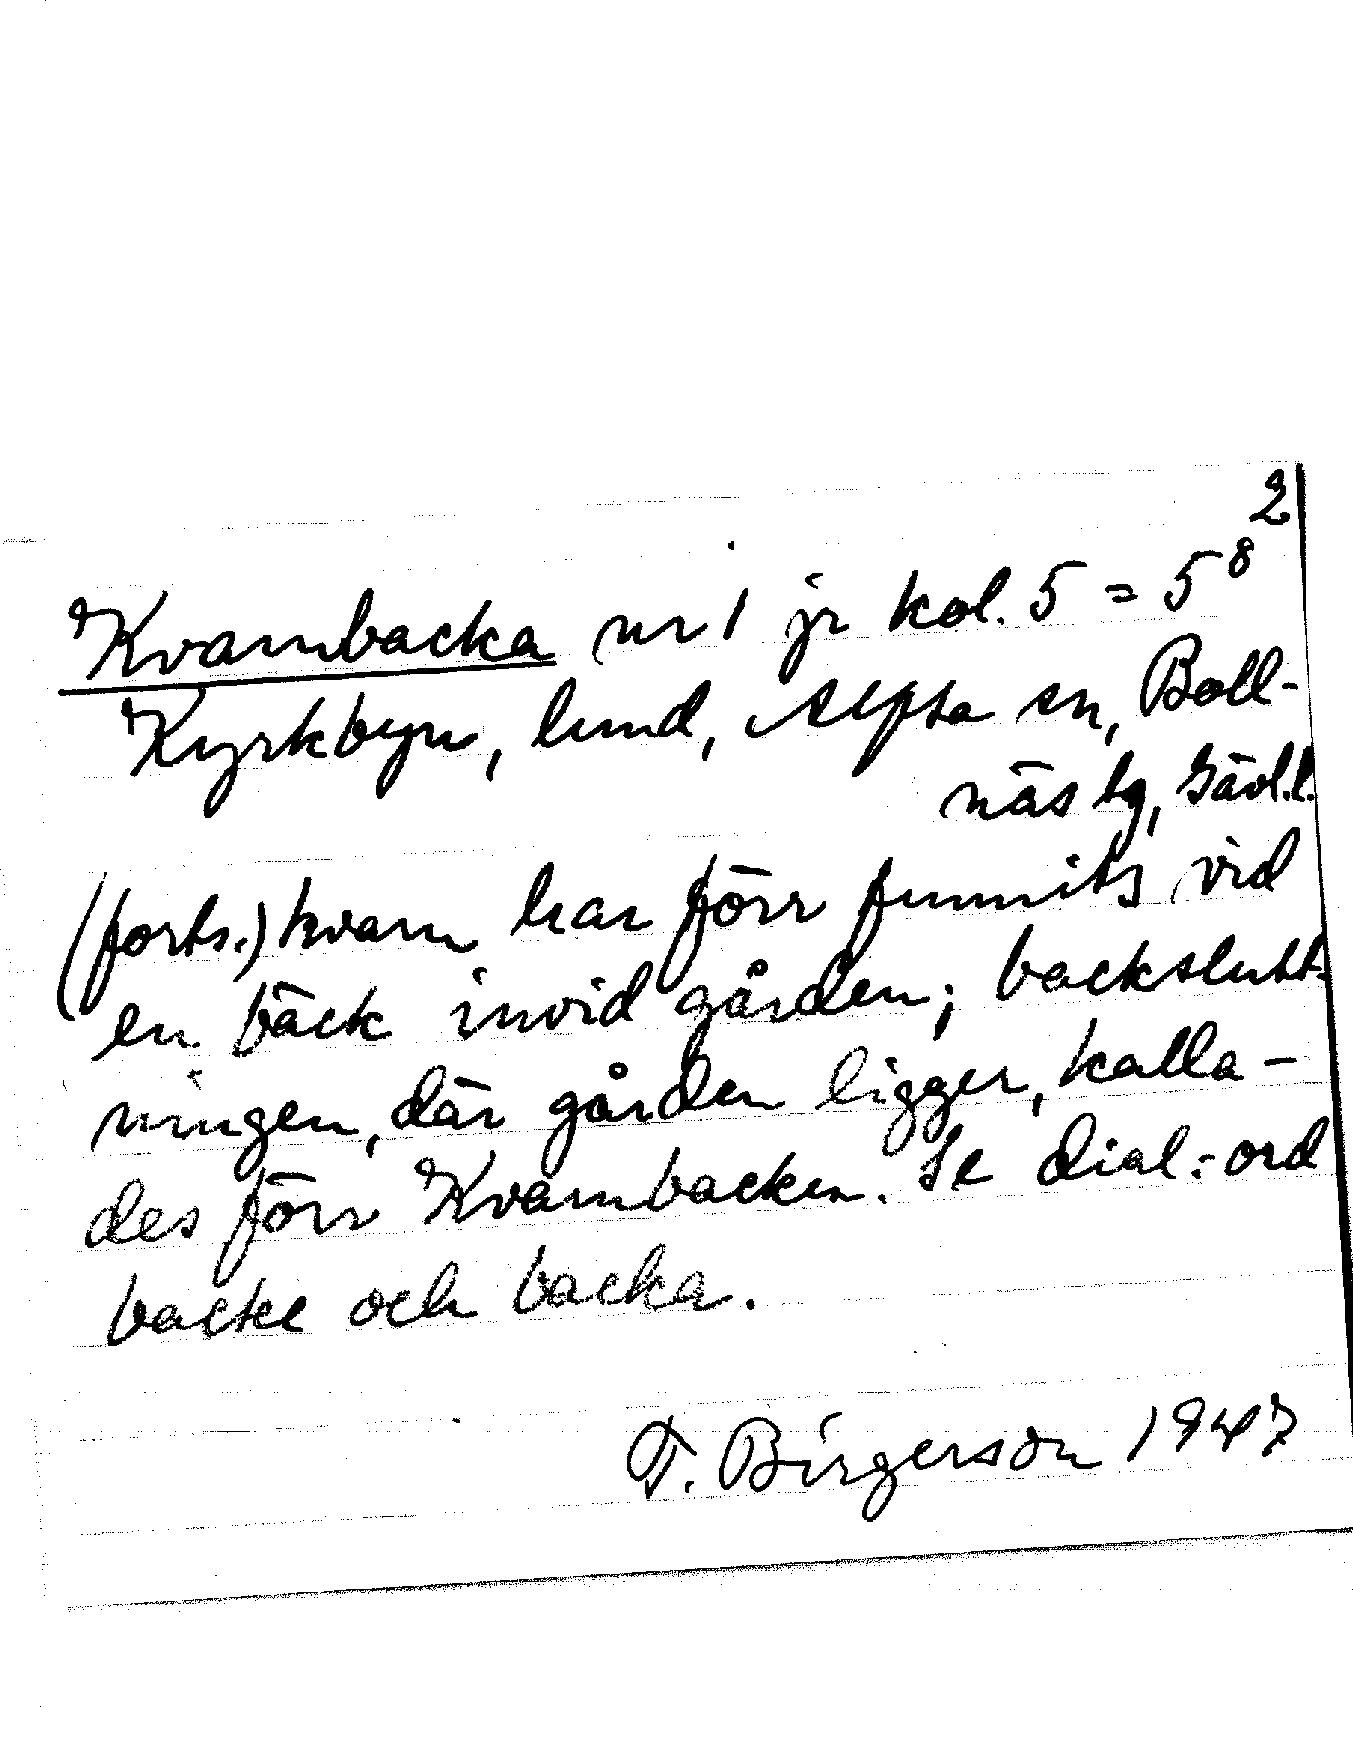 2
Kvarnbacka nr 1 jr kol. 5 = 5⁸
Kyrkbyn, lund, Alfta sn, Boll-
näs tg, Gävl.l.
(forts.) kvarn har förr funnits vid
en bäck invid gården; backslutt-
ningen, där gården ligger, kalla-
des förr Kvarnbacken. Se dial.-ord
backe och backa.
T. Birgerson 1947